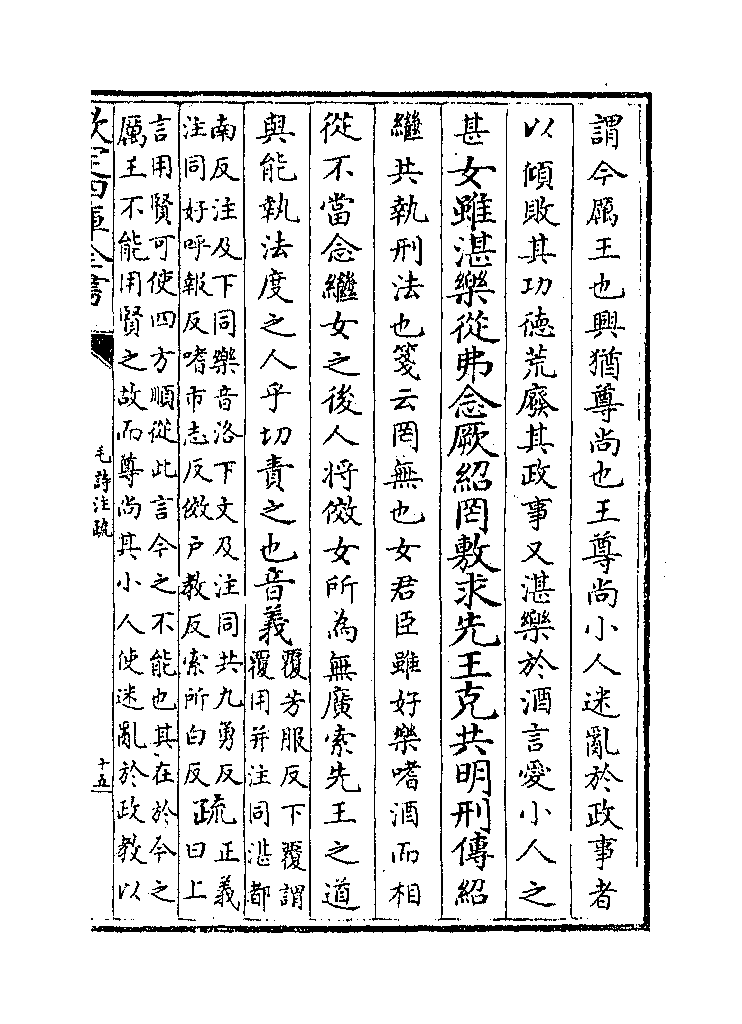 謂今厲王也興猶尊尚也王尊尚小人迷亂於政事者
以傾敗其功徳荒廢其政事又湛樂於酒言愛小人之
甚女雖湛樂從弗念厥紹罔敷求先王克共明刑傳紹
繼共執刑法也箋云罔無也女君臣雖好樂嗜酒而相
從不當念繼女之後人将傚女所為無廣索先王之道
與能執法度之人乎切責之也音義覆芳服反下覆謂
覆用并注同湛都
南反注及下同樂音洛下文及注同共九勇反
注同好呼報反嗜市志反傚戸教反索所白反疏正義
曰上
言用賢可使四方順從此言今之不能也其在於今之
厲王不能用賢之故而尊尚其小人使迷亂於政教以
欽定四庫全書
毛詩注疏
十五